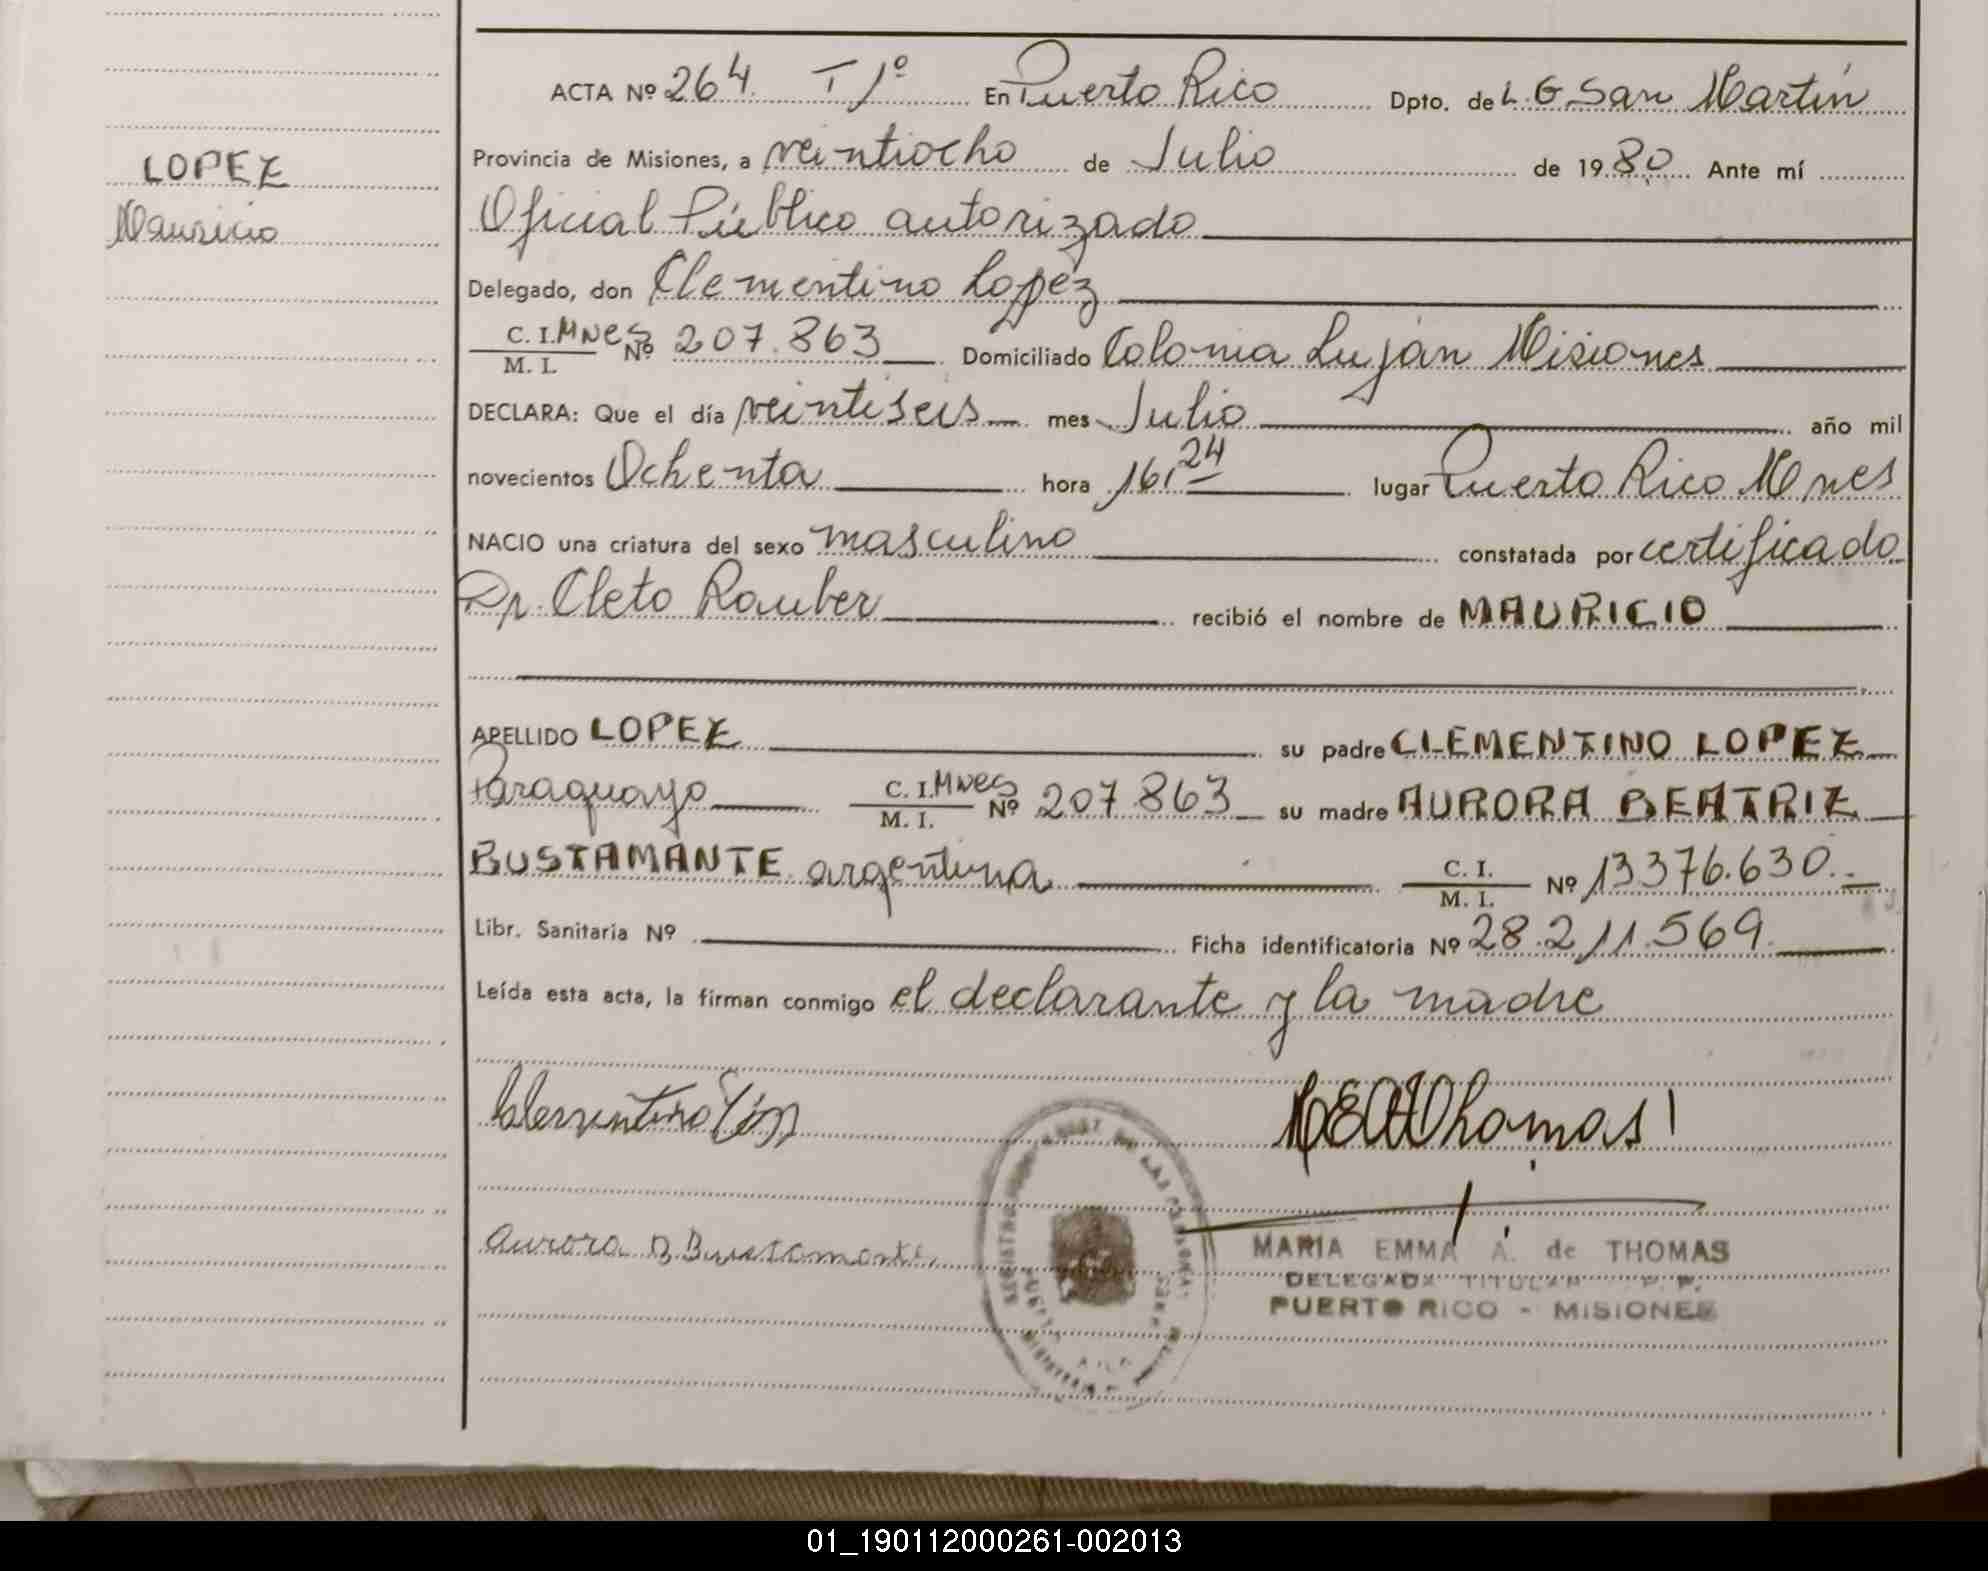 LOPEZ
Mauricio
ACTA Nº 264 T 1º En Puerto Rico Dpto. de L. G San Martín
Provincia de Misiones, a veintiocho de Julio de 1980 Ante mí
Oficial Público autorizado
Delegado, don Clementino Lopez
C. I. Mnes Nº 207.863 Domiciliado Colonia Luján Misiones
M. I.
DECLARA: Que el día veintiseis mes Julio año mil
novecientos Ochenta hora 16,24 lugar Puerto Rico Mnes
NACIO una criatura del sexo masculino constatada por certificado
Dr. Cleto Rauber recibió el nombre de MAURICIO
APELLIDO LOPEZ su padre CLEMENTINO LOPEZ
Paraguayo C. I. Mnes Nº 207.863 su madre AURORA BEATRIZ
M. I.
BUSTAMANTE argentina C. I. Nº 13376.630.
M. I.
Libr. Sanitaria Nº Ficha identificatoria Nº 28.211.569
Leída esta acta, la firman conmigo el declarante y la madre
Clementino
Thomas
Aurora B Bustamante
MARIA EMMA A. de THOMAS
DELEGADA TITULAR P. P.
PUERTO RICO - MISIONES
01_190112000261-002013